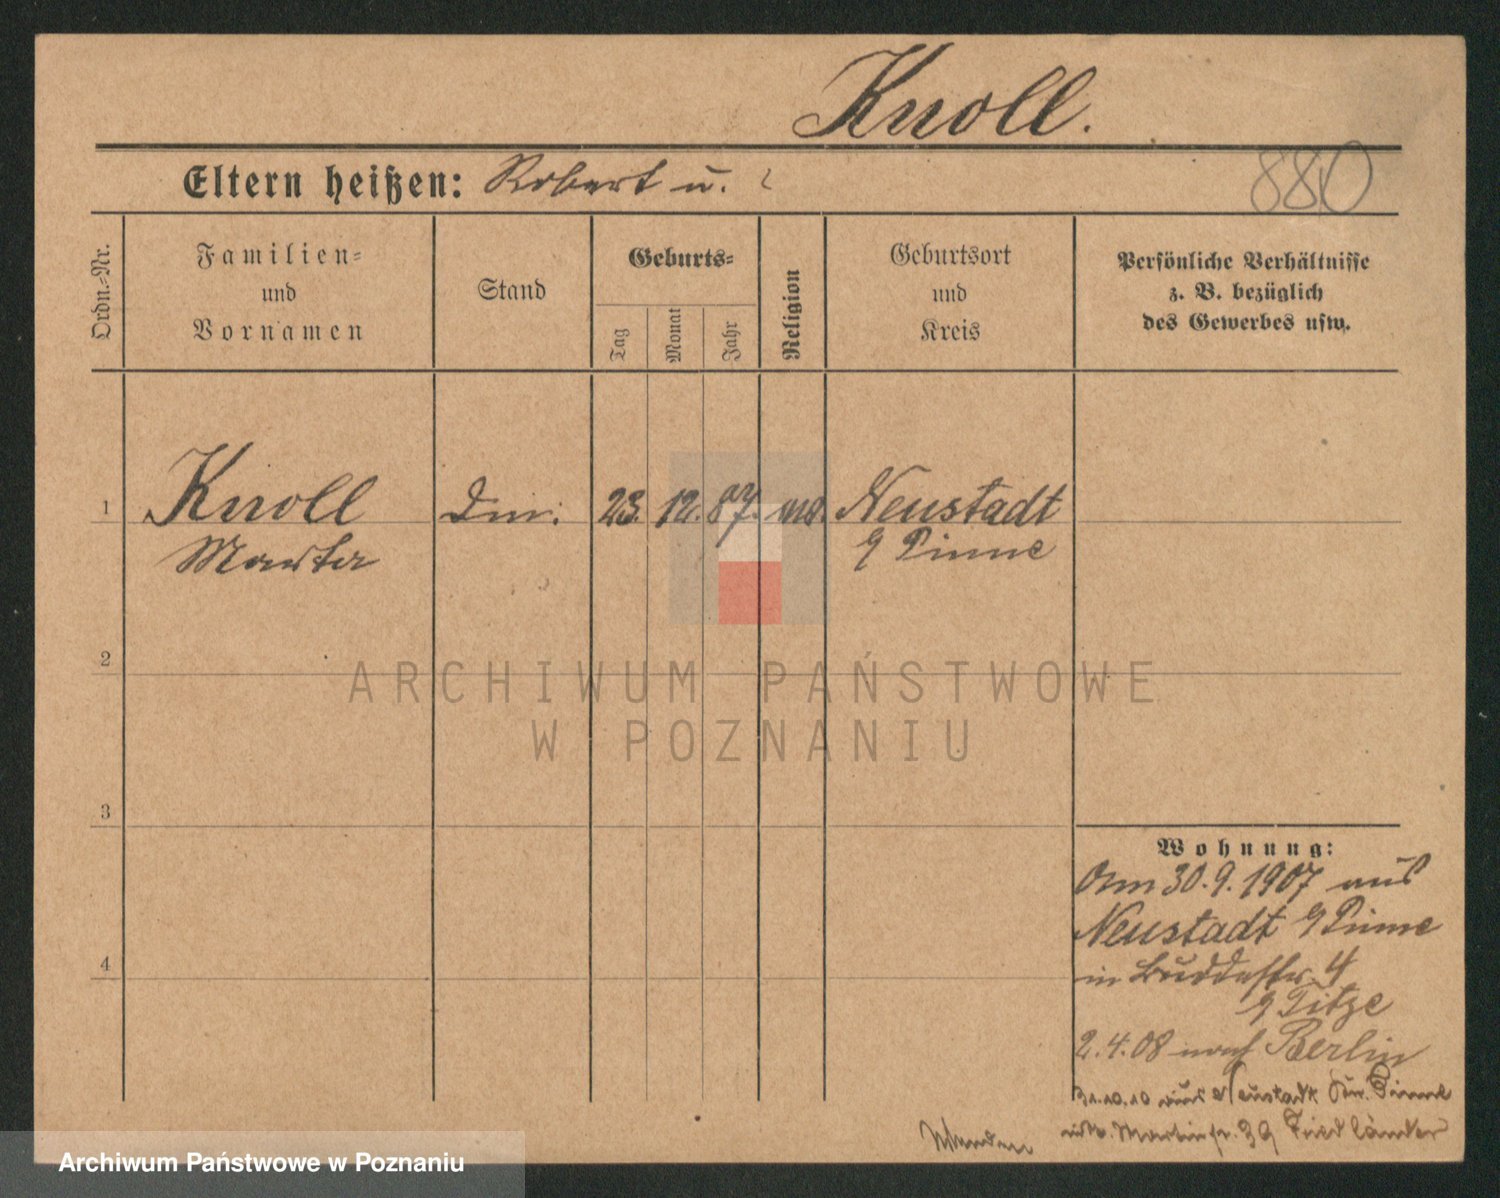 Knoll.
880
Eltern heißen: Robert u. ?
Ordn.-Nr.
Familien-
und
Vornamen
Stand
Geburts-
Tag
Monat
Jahr
Religion
Geburtsort
und
Kreis
Persönliche Verhältnisse
z. B. bezüglich
des Gewerbes usw.
1
Knoll
Martha
23. 12. 87.
Neustadt
b Pinne
2
3
4
Wohnung:
Am 30.9.1907 aus
Neustadt b Pinne
in Buddestr. 4
b Titze
2.4.08 nach Berlin
31.10.10 aus Neustadt Pinne
St. Martinstr. 39 Friedländer
ARCHIWUM PAŃSTWOWE
W POZNANIU
Archiwum Państwowe w Poznaniu